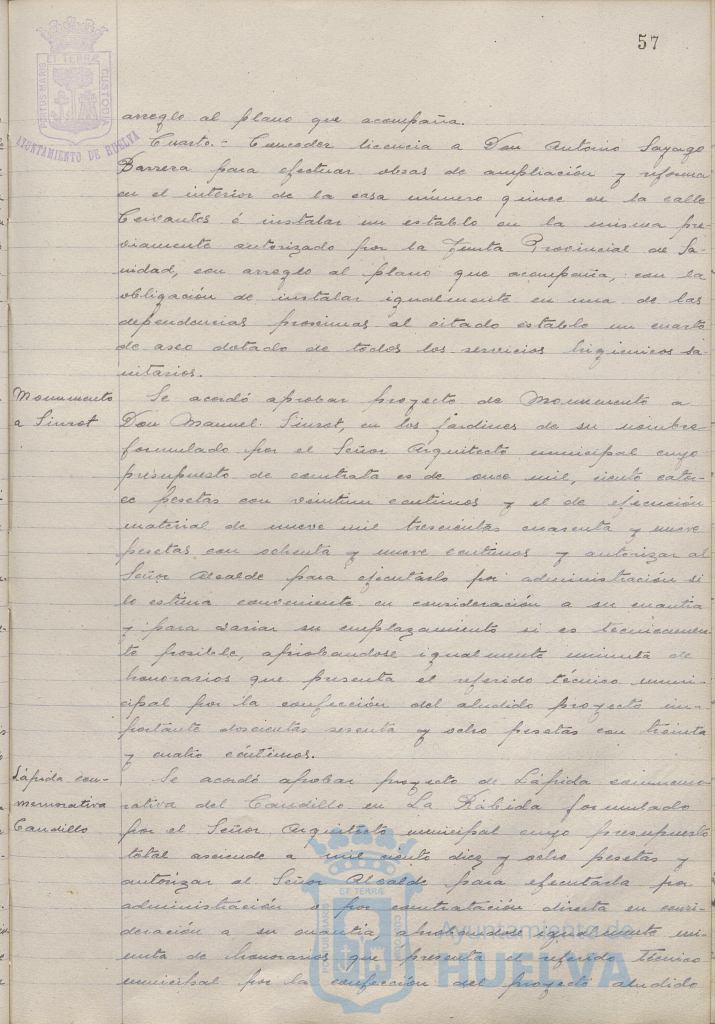 57
PORTUS MARIS ET TERRÆ CUSTODIA
AYUNTAMIENTO DE HUELVA
arreglo al plano que acompaña.
Cuarto.- Conceder licencia a Don Antonio Sayago
Barrera para efectuar obras de ampliación y reforma
en el interior de la casa número quince de la calle
Cervantes é instalar un establo en la misma pre-
viamente autorizado por la Junta Provincial de Sa-
nidad, con arreglo al plano que acompaña, con la
obligación de instalar igualmente en una de las
dependencias proximas al citado establo un cuarto
de aseo dotado de todos los servicios higienicos sa-
nitarios.
Monumento
a Siurot
Se acordó aprobar proyecto de Monumento a
Don Manuel Siurot, en los jardines de su nombre
formulado por el Señor Arquitecto municipal cuyo
presupuesto de contrata es de once mil, ciento cator-
ce pesetas con veintiun centimos y el de ejecución
material de nueve mil trescientas cuarenta y nueve
pesetas con ochenta y nueve centimos y autorizar al
Señor Alcalde para ejecutarlo por administración si
lo estima conveniente en consideración a su cuantia
y para variar su emplazamiento si es tecnicamen-
te posible, aprobandose igualmente minuta de
honorarios que presenta el referido técnico muni-
cipal por la confección del aludido proyecto im-
portante doscientas sesenta y ocho pesetas con treinta
y cuatro céntimos.
Lápida con-
memorativa
Caudillo
Se acordó aprobar proyecto de Lápida conmemo-
rativa del Caudillo en La Rábida formulado
por el Señor Arquitecto municipal cuyo presupuesto
total asciende a mil ciento diez y ocho pesetas y
autorizar al Señor Alcalde para ejecutarla por
administración o por contratación directa en consi-
deración a su cuantia aprobandose igualmente mi-
nuta de honorarios que presenta el referido técnico
municipal por la confección del proyecto aludido
PORTUS MARIS ET TERRÆ CUSTODIA
Ayuntamiento de
HUELVA